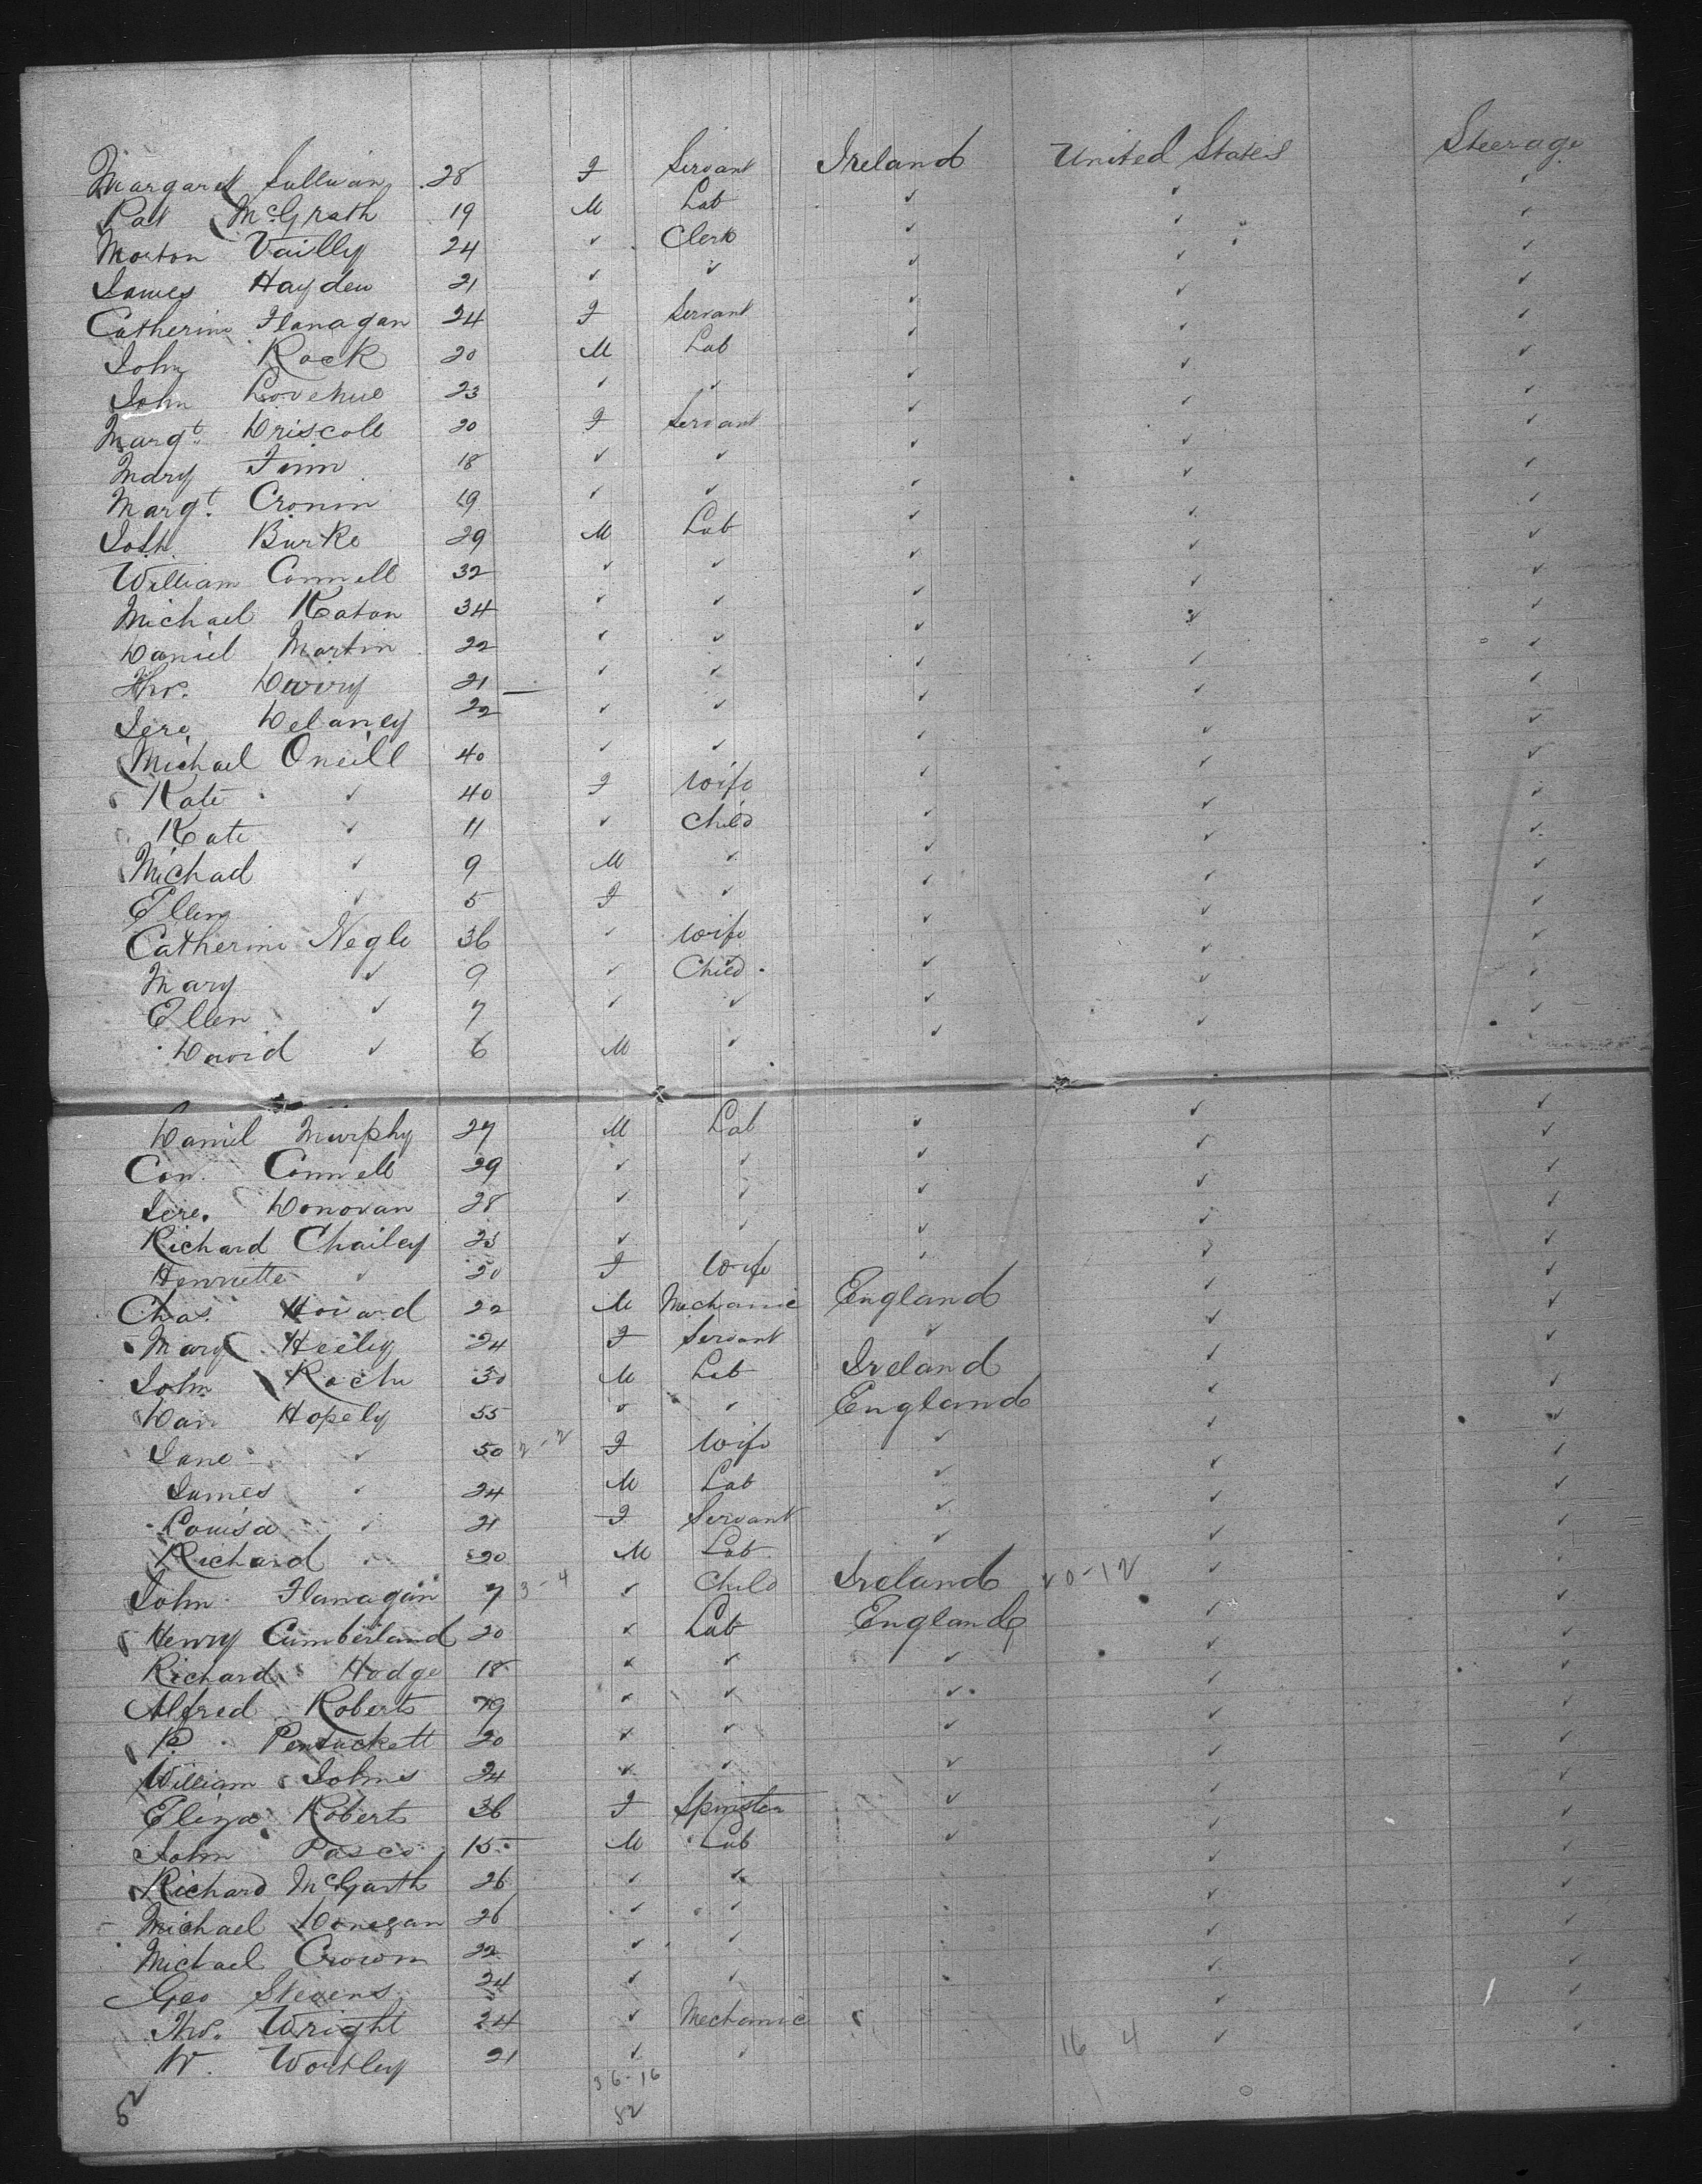 Margaret Sullivan 28 F Servant Ireland United States Steerage
Pat McGrath 19 M Lab ✓ ✓ ✓
Morton Vailly 24 ✓ Clerk ✓ ✓ ✓
James Hayden 21 ✓ ✓ ✓ ✓ ✓
Catherine Flanagan 24 F Servant ✓ ✓ ✓
John Rock 20 M Lab ✓ ✓ ✓
John 23 ✓ ✓ ✓ ✓ ✓
Margt. Driscoll 20 F Servant ✓ ✓ ✓
Mary Finn 18 ✓ ✓ ✓ ✓ ✓
Margt. Cronin 19 ✓ ✓ ✓ ✓ ✓
Burke 29 M Lab ✓ ✓ ✓
William Connell 32 ✓ ✓ ✓ ✓ ✓
Michael Keaton 34 ✓ ✓ ✓ ✓ ✓
Daniel Martin 22 ✓ ✓ ✓ ✓ ✓
Tho. 21 — ✓ ✓ ✓ ✓ ✓
Jere. Delaney 22 ✓ ✓ ✓ ✓ ✓
Michael Oneill 40 ✓ ✓ ✓ ✓ ✓
Kate ✓ 40 F Wife ✓ ✓ ✓
Kate ✓ 11 ✓ Child ✓ ✓ ✓
Michael ✓ 9 M ✓ ✓ ✓ ✓
Ellen ✓ 5 F ✓ ✓ ✓ ✓
Catherine Negle 36 ✓ Wife ✓ ✓ ✓
Mary ✓ 9 ✓ Child ✓ ✓ ✓
Ellen ✓ 7 ✓ ✓ ✓ ✓ ✓
David ✓ 6 M ✓ ✓ ✓ ✓
Daniel Murphy 27 M Lab ✓ ✓ ✓
Con. Connell 29 ✓ ✓ ✓ ✓ ✓
Jere. Donovan 28 ✓ ✓ ✓ ✓ ✓
Richard Chailey 23 ✓ ✓ ✓ ✓ ✓
Henriette ✓ 20 F Wife ✓ ✓ ✓
Chas. Howard 22 M Mechanic England ✓ ✓
Mary Heeley 24 F Servant ✓ ✓ ✓
John Roche 30 M Lab Ireland ✓ ✓
Dan Hopely 55 ✓ ✓ England ✓ ✓
Jane ✓ 50 2-2 F Wife ✓ ✓ ✓
James ✓ 24 M Lab ✓ ✓ ✓
Louisa ✓ 21 F Servant ✓ ✓ ✓
Richard ✓ 20 M Lab ✓ ✓ ✓
John Flanagan 7 3-4 ✓ Child Ireland 20-12 ✓ ✓
Henry Cumberland 20 ✓ Lab England ✓ ✓
Richard Hodge 18 ✓ ✓ ✓ ✓ ✓
Alfred Roberts 19 ✓ ✓ ✓ ✓ ✓
P. Pentuckett 20 ✓ ✓ ✓ ✓ ✓
William Johns 24 ✓ ✓ ✓ ✓ ✓
Eliza Roberts 36 F Spinster ✓ ✓ ✓
John Pasco 15 M Lab ✓ ✓ ✓
Richard McGarth 26 ✓ ✓ ✓ ✓
Michael Donegan 26 ✓ ✓ ✓ ✓
Michael Crown 22 ✓ ✓ ✓ ✓
Geo Stevens 24 ✓ ✓ ✓ ✓
Tho. Wright 24 ✓ Mechanic ✓ ✓
W. Wortley 21 ✓ ✓ 16 4 ✓ ✓
36-16
52 52